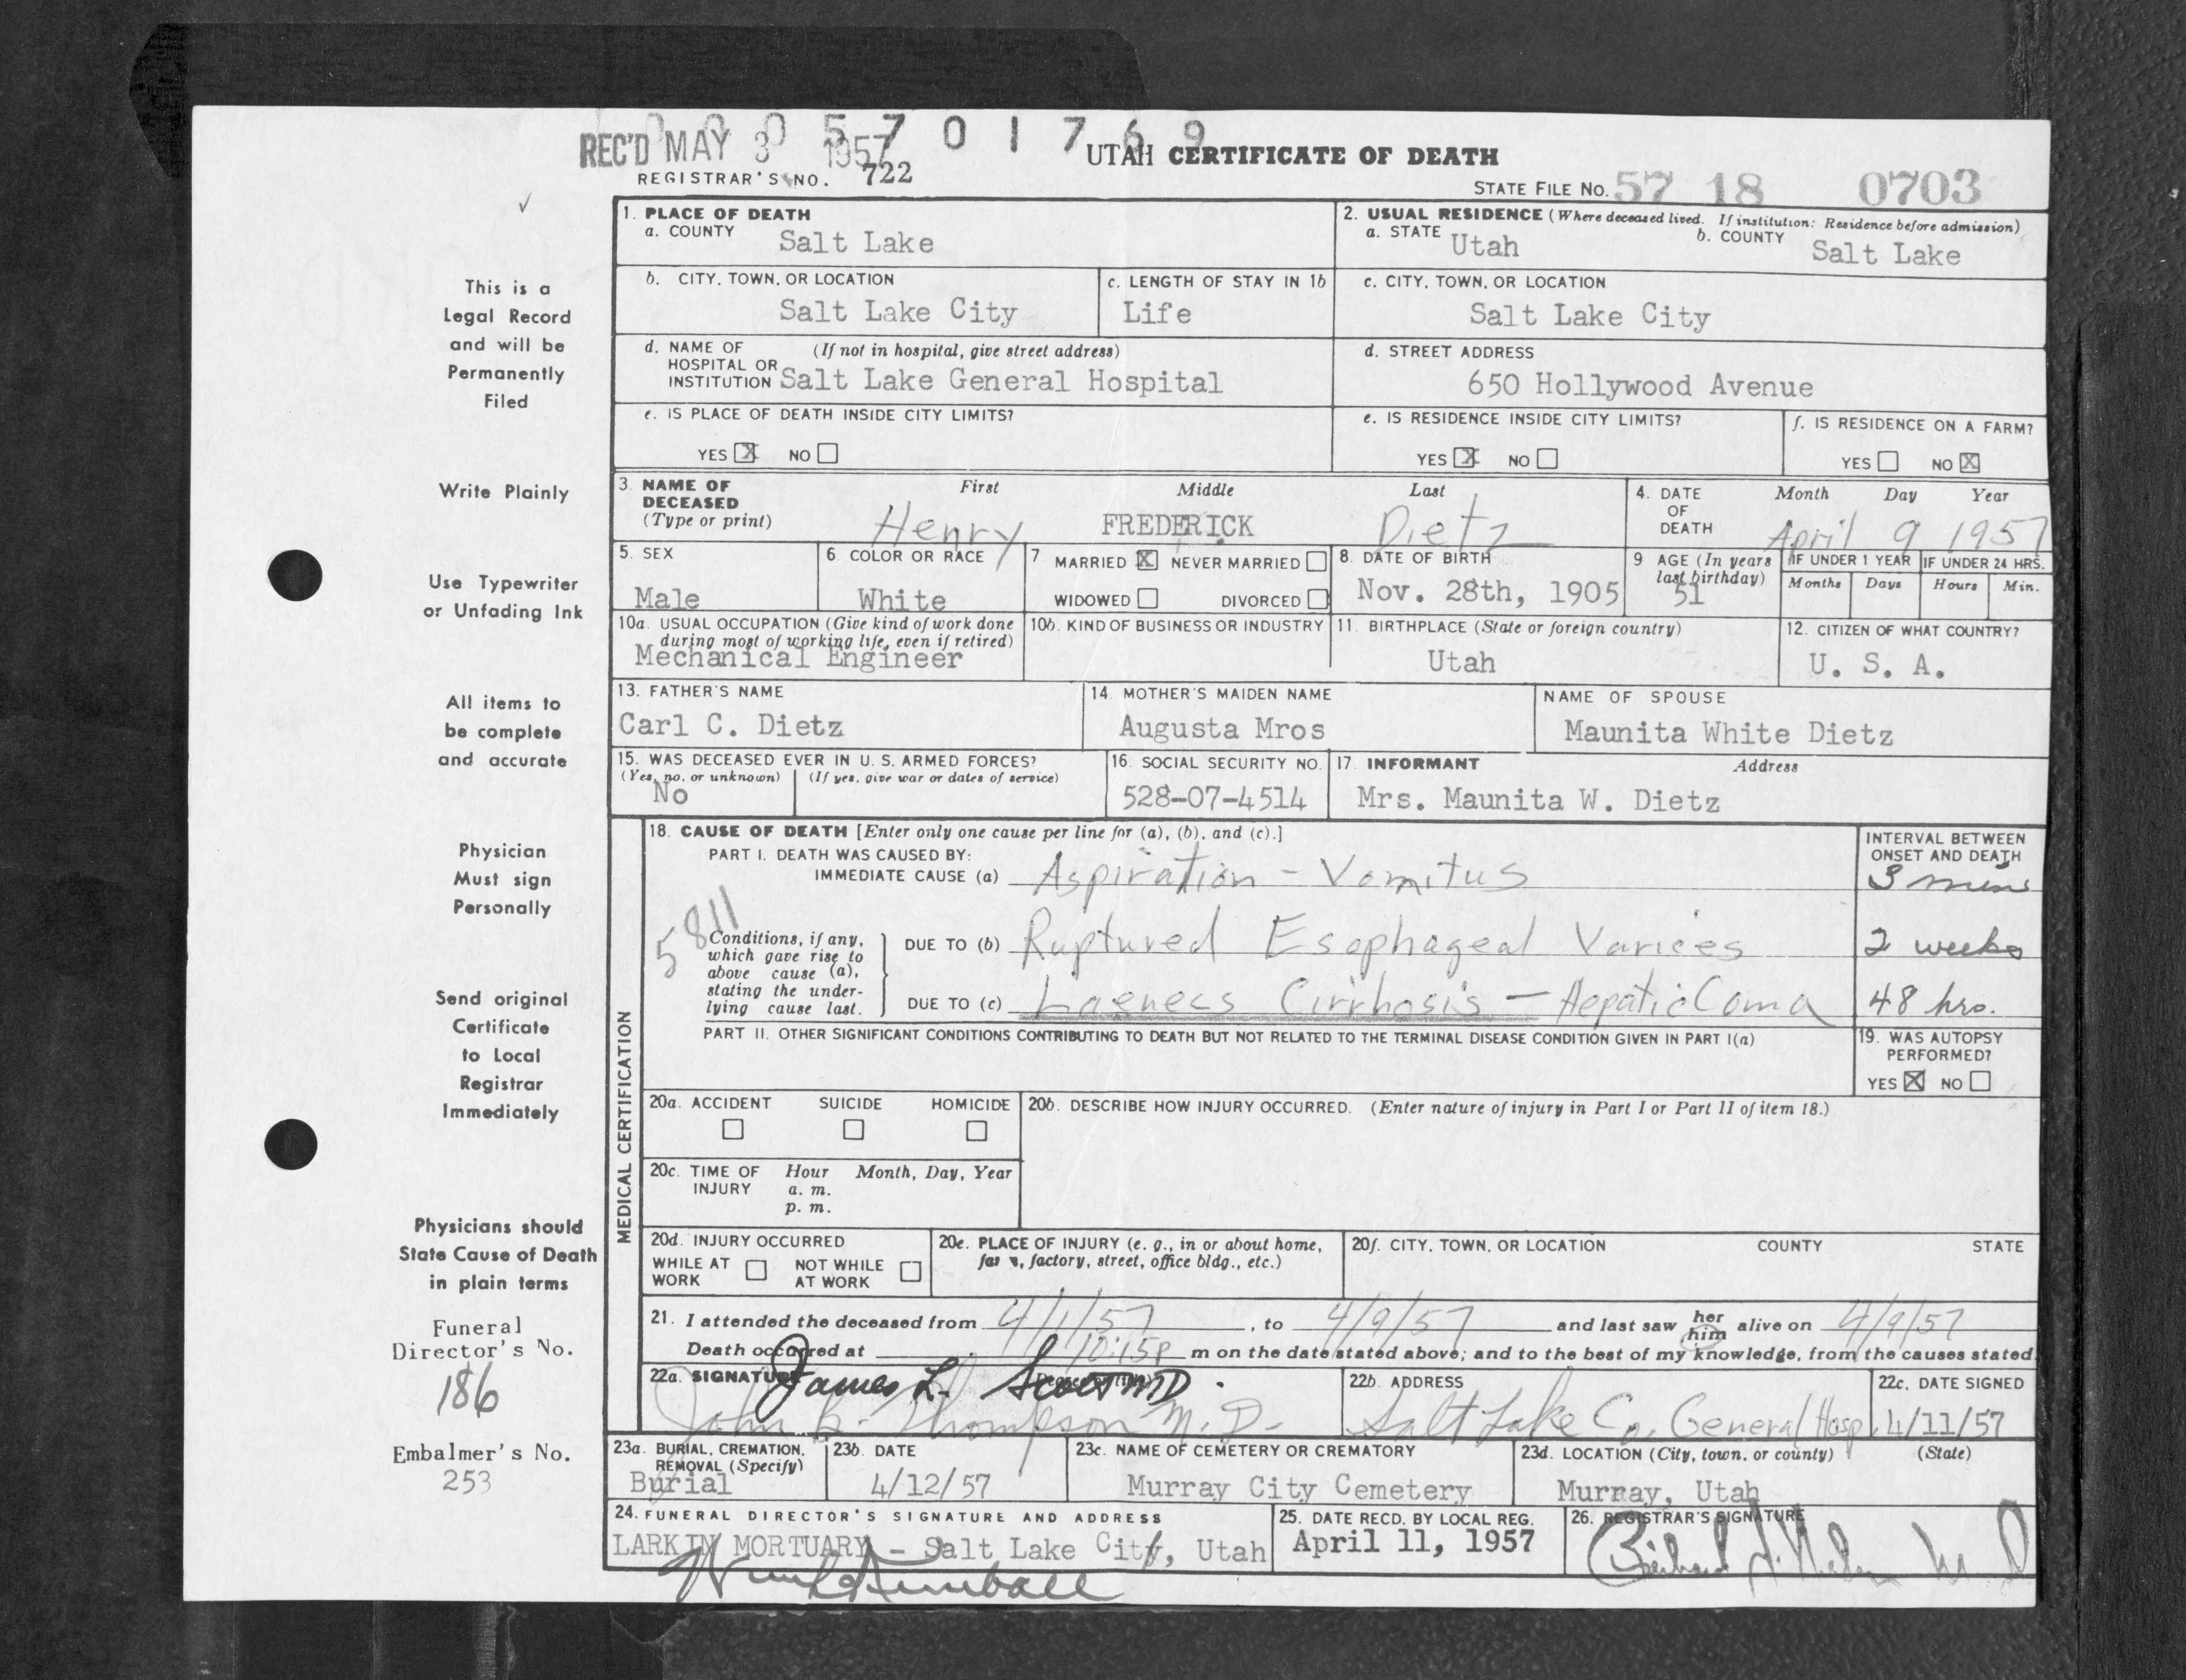 0 0 0 5 7 0 1 7 6 9
REC'D MAY 3 1957
UTAH CERTIFICATE OF DEATH
REGISTRAR'S NO. 722
STATE FILE NO. 57 18 0703
This is a
Legal Record
and will be
Permanently
Filed
Write Plainly
Use Typewriter
or Unfading Ink
All items to
be complete
and accurate
Physician
Must sign
Personally
Send original
Certificate
to Local
Registrar
Immediately
Physicians should
State Cause of Death
in plain terms
Funeral
Director's No.
186
Embalmer's No.
253
1. PLACE OF DEATH
a. COUNTY Salt Lake
2. USUAL RESIDENCE (Where deceased lived. If institution: Residence before admission)
a. STATE Utah b. COUNTY Salt Lake
b. CITY, TOWN, OR LOCATION
Salt Lake City
c. LENGTH OF STAY IN 1b
Life
c. CITY, TOWN, OR LOCATION
Salt Lake City
d. NAME OF (If not in hospital, give street address)
HOSPITAL OR
INSTITUTION Salt Lake General Hospital
d. STREET ADDRESS
650 Hollywood Avenue
e. IS PLACE OF DEATH INSIDE CITY LIMITS?
YES X NO
e. IS RESIDENCE INSIDE CITY LIMITS?
YES X NO
f. IS RESIDENCE ON A FARM?
YES NO X
3. NAME OF DECEASED (Type or print)
First Middle Last
Henry FREDERICK Dietz
4. DATE OF DEATH
Month Day Year
April 9 1957
5. SEX
Male
6 COLOR OR RACE
White
7 MARRIED X NEVER MARRIED
WIDOWED DIVORCED
8. DATE OF BIRTH
Nov. 28th, 1905
9 AGE (In years
last birthday)
51
IF UNDER 1 YEAR
Months Days
IF UNDER 24 HRS.
Hours Min.
10a. USUAL OCCUPATION (Give kind of work done
during most of working life, even if retired)
Mechanical Engineer
10b. KIND OF BUSINESS OR INDUSTRY
11. BIRTHPLACE (State or foreign country)
Utah
12. CITIZEN OF WHAT COUNTRY?
U. S. A.
13. FATHER'S NAME
Carl C. Dietz
14. MOTHER'S MAIDEN NAME
Augusta Mros
NAME OF SPOUSE
Maunita White Dietz
15. WAS DECEASED EVER IN U. S. ARMED FORCES?
(Yes, no, or unknown) (If yes, give war or dates of service)
No
16. SOCIAL SECURITY NO.
528-07-4514
17. INFORMANT Address
Mrs. Maunita W. Dietz
MEDICAL CERTIFICATION
18. CAUSE OF DEATH [Enter only one cause per line for (a), (b), and (c).]
INTERVAL BETWEEN
ONSET AND DEATH
PART I. DEATH WAS CAUSED BY:
IMMEDIATE CAUSE (a) Aspiration - Vomitus 3 mins
5811
Conditions, if any,
which gave rise to
above cause (a),
stating the under-
lying cause last.
DUE TO (b) Ruptured Esophageal Varices 2 weeks
DUE TO (c) Laenecs Cirrhosis - Hepatic Coma 48 hrs.
PART II. OTHER SIGNIFICANT CONDITIONS CONTRIBUTING TO DEATH BUT NOT RELATED TO THE TERMINAL DISEASE CONDITION GIVEN IN PART I(a)
19. WAS AUTOPSY
PERFORMED?
YES X NO
20a. ACCIDENT SUICIDE HOMICIDE
20b. DESCRIBE HOW INJURY OCCURRED. (Enter nature of injury in Part I or Part II of item 18.)
20c. TIME OF INJURY Hour Month, Day, Year
a. m.
p. m.
20d. INJURY OCCURRED
WHILE AT WORK NOT WHILE AT WORK
20e. PLACE OF INJURY (e. g., in or about home,
farm, factory, street, office bldg., etc.)
20f. CITY, TOWN, OR LOCATION COUNTY STATE
21. I attended the deceased from 4/1/57, to 4/9/57 and last saw her him alive on 4/9/57
Death occurred at 10:15P m on the date stated above; and to the best of my knowledge, from the causes stated.
22a. SIGNATURE (Degree or title)
James L. Scott MD.
John B. Thompson M.D.
22b. ADDRESS
Salt Lake Co. General Hosp.
22c. DATE SIGNED
4/11/57
23a. BURIAL, CREMATION,
REMOVAL (Specify)
Burial
23b. DATE
4/12/57
23c. NAME OF CEMETERY OR CREMATORY
Murray City Cemetery
23d. LOCATION (City, town, or county) (State)
Murray, Utah
24. FUNERAL DIRECTOR'S SIGNATURE AND ADDRESS
LARKIN MORTUARY - Salt Lake City, Utah
25. DATE RECD. BY LOCAL REG.
April 11, 1957
26. REGISTRAR'S SIGNATURE